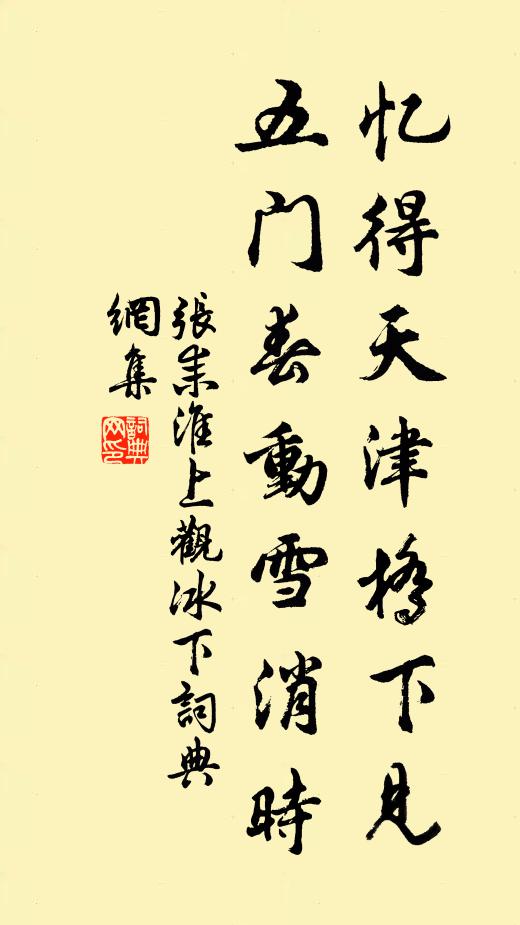 忆得天津橋下見
五门春動雪消時
張耒淮上觀冰下詞典
網集
詞典
网印